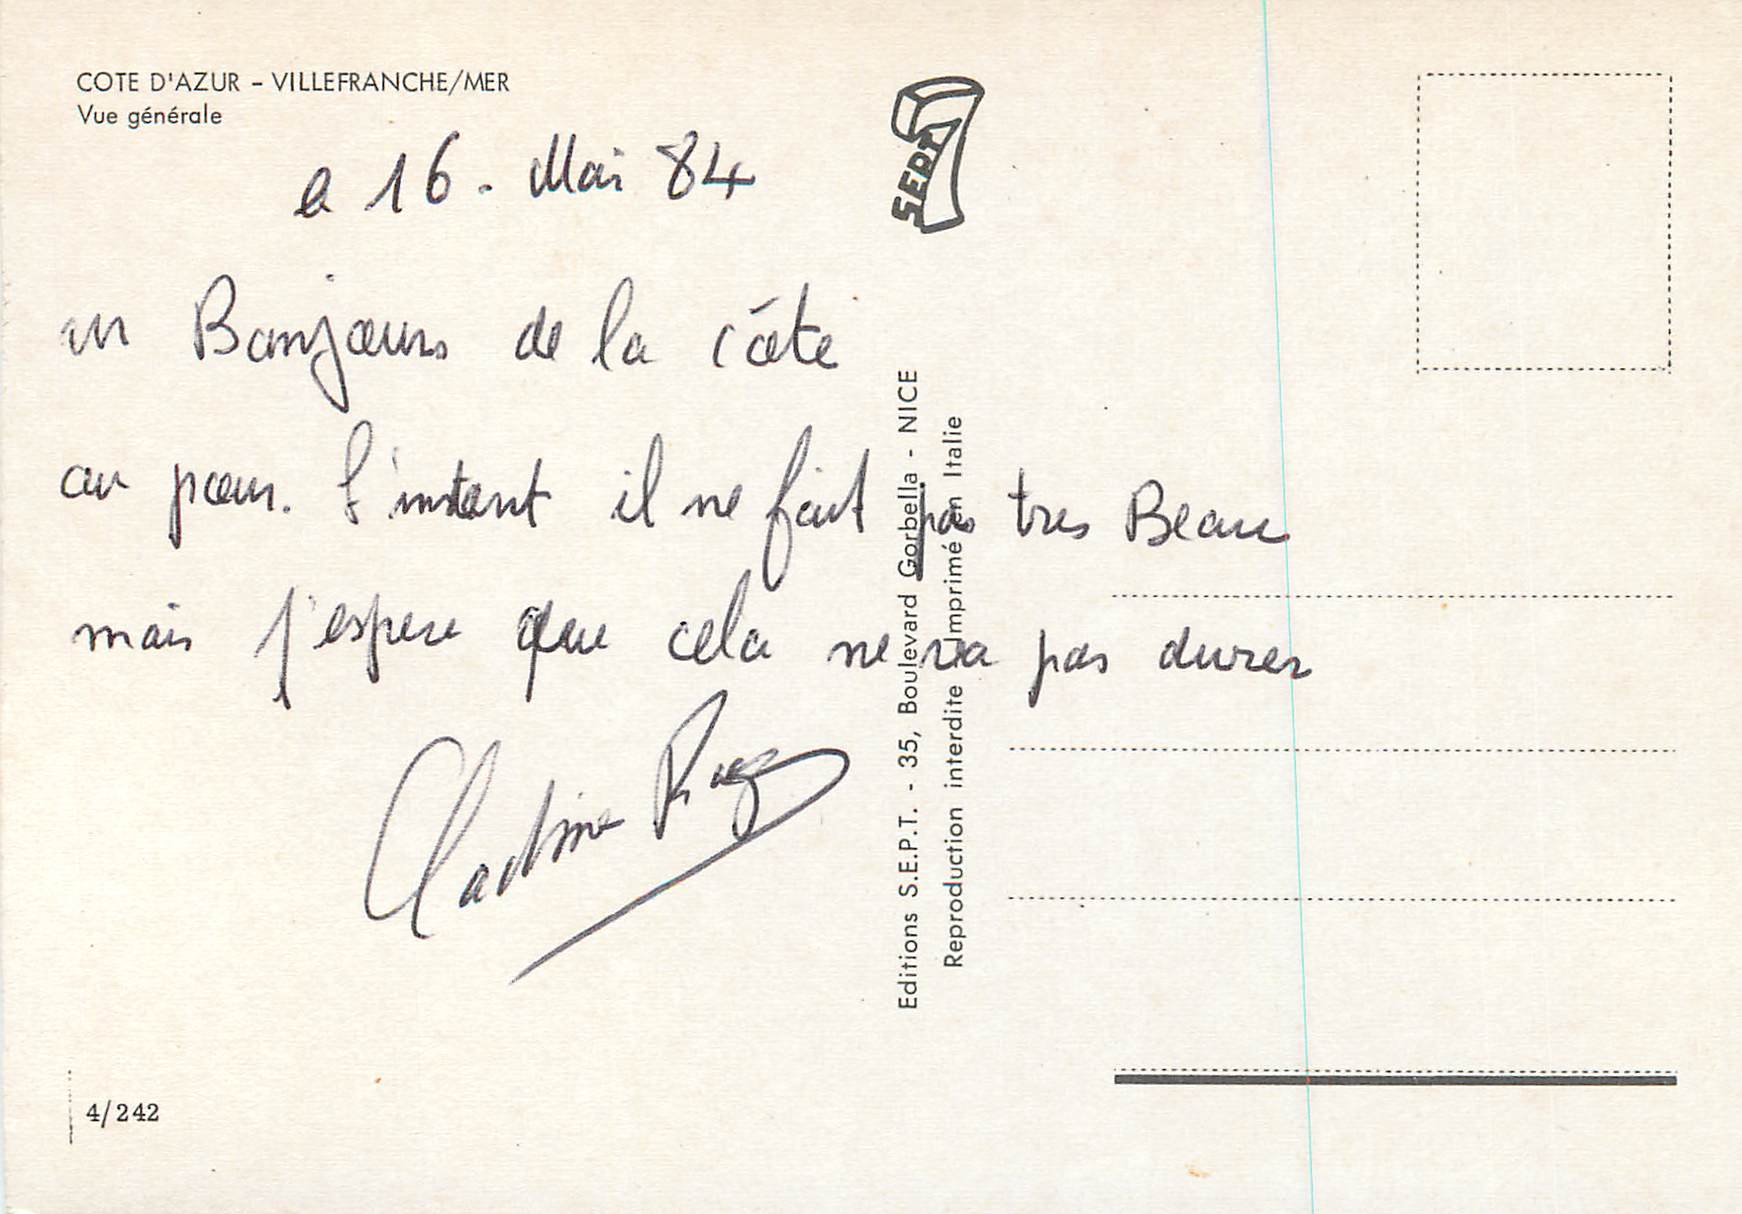 COTE D'AZUR – VILLEFRANCHE/MER
Vue générale
SEPT
le 16. Mai 84
un Bonjours de la côte
au pour. l'instant il ne fait pas tres Beau
mais j'espere que cela ne va pas durer
Editions S.E.P.T. - 35, Boulevard Gorbella - NICE
Reproduction interdite Imprimé en Italie
4/242